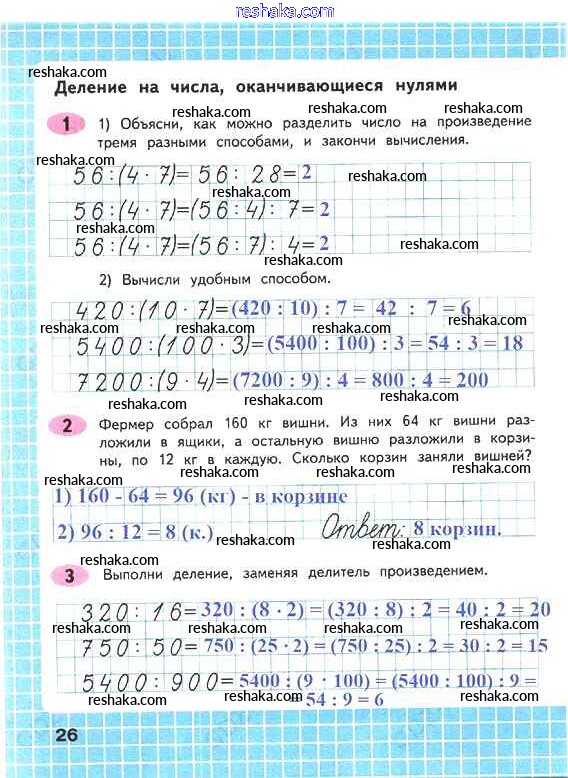 reshaka.com
reshaka.com
Деление на числа, оканчивающиеся нулями
reshaka.com
reshaka.com
1 1) Объясни, как можно разделить число на произведение
тремя разными способами, и закончи вычисления.
reshaka.com
reshaka.com
56:(4·7)=56:28=2
reshaka.com
56:(4·7)=(56:4):7=2
reshaka.com
reshaka.com
56:(4·7)=(56:7):4=2
reshaka.com
2) Вычисли удобным способом.
reshaka.com
420:(10·7)=(420 : 10) : 7 = 42 : 7 = 6
reshaka.com
reshaka.com
5400:(100·3)=(5400 : 100) : 3 = 54 : 3 = 18
reshaka.com
7200:(9·4)=(7200 : 9) : 4 = 800 : 4 = 200
reshaka.com
reshaka.com
2 Фермер собрал 160 кг вишни. Из них 64 кг вишни раз-
ложили в ящики, а остальную вишню разложили в корзи-
ны, по 12 кг в каждую. Сколько корзин заняли вишней?
reshaka.com
reshaka.com
1) 160 - 64 = 96 (кг) - в корзине
reshaka.com
2) 96 : 12 = 8 (к.) Ответ: 8 корзин.
reshaka.com
reshaka.com
reshaka.com
3 Выполни деление, заменяя делитель произведением.
reshaka.com
reshaka.com
320:16=320 : (8 · 2) = (320 : 8) : 2 = 40 : 2 = 20
reshaka.com
reshaka.com
750:50=750 : (25 · 2) = (750 : 25) : 2 = 30 : 2 = 15
reshaka.com
reshaka.com
5400:900=5400 : (9 · 100) = (5400 : 100) : 9 =
= 54 : 9 = 6
reshaka.com
reshaka.com
26
reshaka.com
reshaka.com